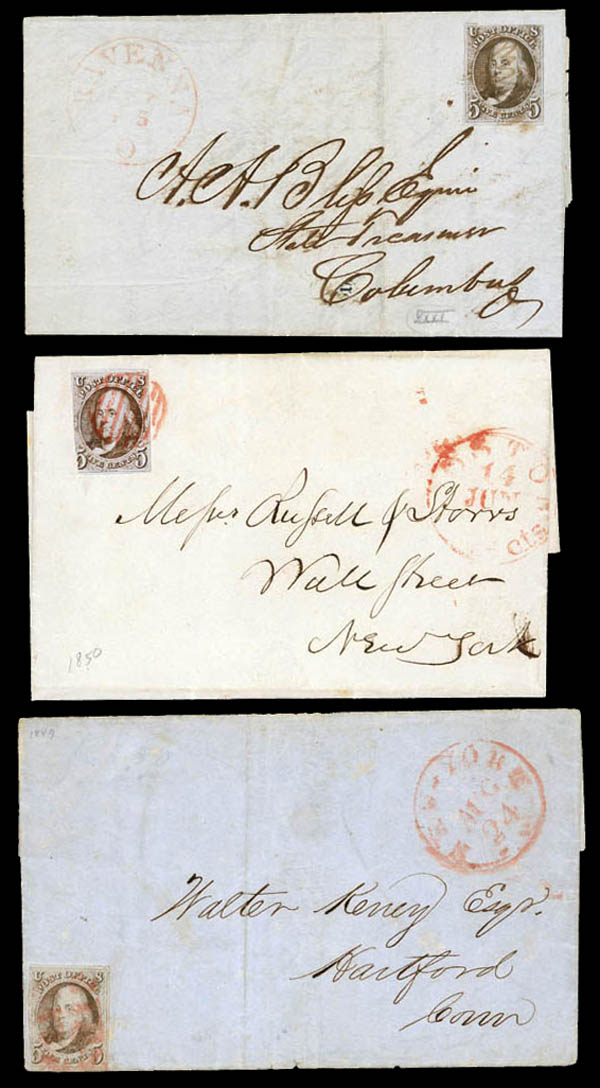 RAVENNA
5
O
U S
POST OFFICE
5 FIVE CENTS 5
A. A. Bliss, Esquire
State Treasurer
Columbus
O
U S
POST OFFICE
5 FIVE CENTS 5
BOSTON
14
JUN
cts
Messrs. Russell & Storrs
Wall Street
New York
1850
1849
NEW-YORK
24
Walter Keney Esqr.
Hartford
Conn
U S
POST OFFICE
5 FIVE CENTS 5